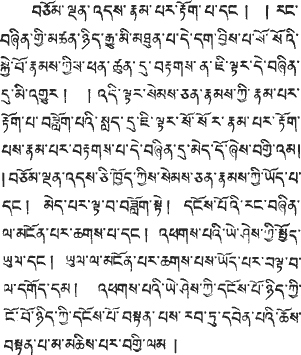 བཅོམ་ལྡན་འདས་རྣམ་པར་རྟོག་པ་དང །   །རང་
བཞིན་གྱི་མཚན་ཉིད་རྒྱུ་མི་མཐུན་པ་དེ་དག་བྱིས་པ་སོ་སོའི་
སྐྱེ་བོ་རྣམས་ཀྱིས་ཕན་ཚུན་དུ་བརྟགས་ན་ཇི་ལྟར་དེ་བཞིན་
དུ་མི་འགྱུར །   །འདི་ལྟར་སེམས་ཅན་རྣམས་ཀྱི་རྣམ་པར་
རྟོག་པ་བཟློག་པའི་སླད་དུ་ཇི་ལྟར་སོ་སོར་རྣམ་པར་རྟོག་
པས་རྣམ་པར་བརྟགས་པ་དེ་བཞིན་དུ་མེད་དོ་ཞེས་བགྱི་འམ།
།བཅོམ་ལྡན་འདས་ཅི་ཁྱོད་ཀྱིས་སེམས་ཅན་རྣམས་ཀྱི་ཡོད་པ་
དང །  མེད་པར་ལྟ་བ་བཟློག་སྟེ །  དངོས་པོའི་རང་བཞིན་
ལ་མངོན་པར་ཆགས་པ་དང །  འཕགས་པའི་ཡེ་ཤེས་ཀྱི་སྤྱོད་
ཡུལ་དང །  ཡུལ་ལ་མངོན་པར་ཆགས་པས་ཡོད་པར་བལྟ་བ་
ལ་དགོད་དམ །  འཕགས་པའི་ཡེ་ཤེས་ཀྱི་དངོས་པོ་ཉིད་ཀྱི་
ངོ་བོ་ཉིད་ཀྱི་དངོས་པོ་བསྟན་པས་རབ་ཏུ་དབེན་པའི་ཆོས་
བསྟན་པ་མ་མཆིས་པར་བགྱི་ལམ །